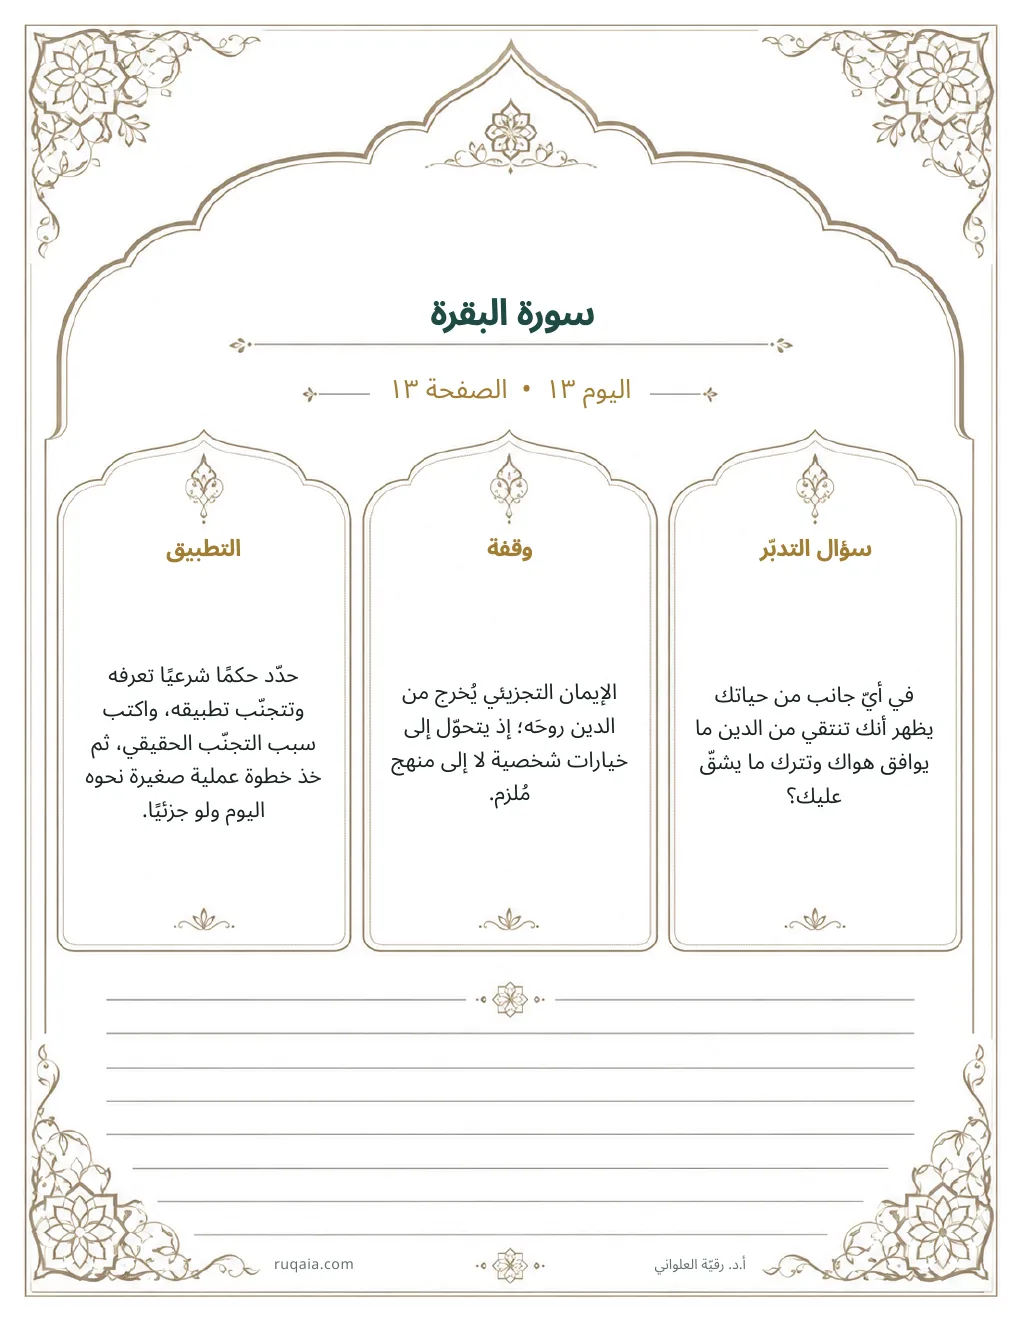 سورة البقرة
اليوم ١٣ • الصفحة ١٣
سؤال التدبّر
في أيّ جانب من حياتك
يظهر أنك تنتقي من الدين ما
يوافق هواك وتترك ما يشقّ
عليك؟
وقفة
الإيمان التجزيئي يُخرج من
الدين روحَه؛ إذ يتحوّل إلى
خيارات شخصية لا إلى منهج
مُلزم.
التطبيق
حدّد حكمًا شرعيًا تعرفه
وتتجنّب تطبيقه، واكتب
سبب التجنّب الحقيقي، ثم
خذ خطوة عملية صغيرة نحوه
اليوم ولو جزئيًا.
أ.د. رقيّة العلواني
ruqaia.com